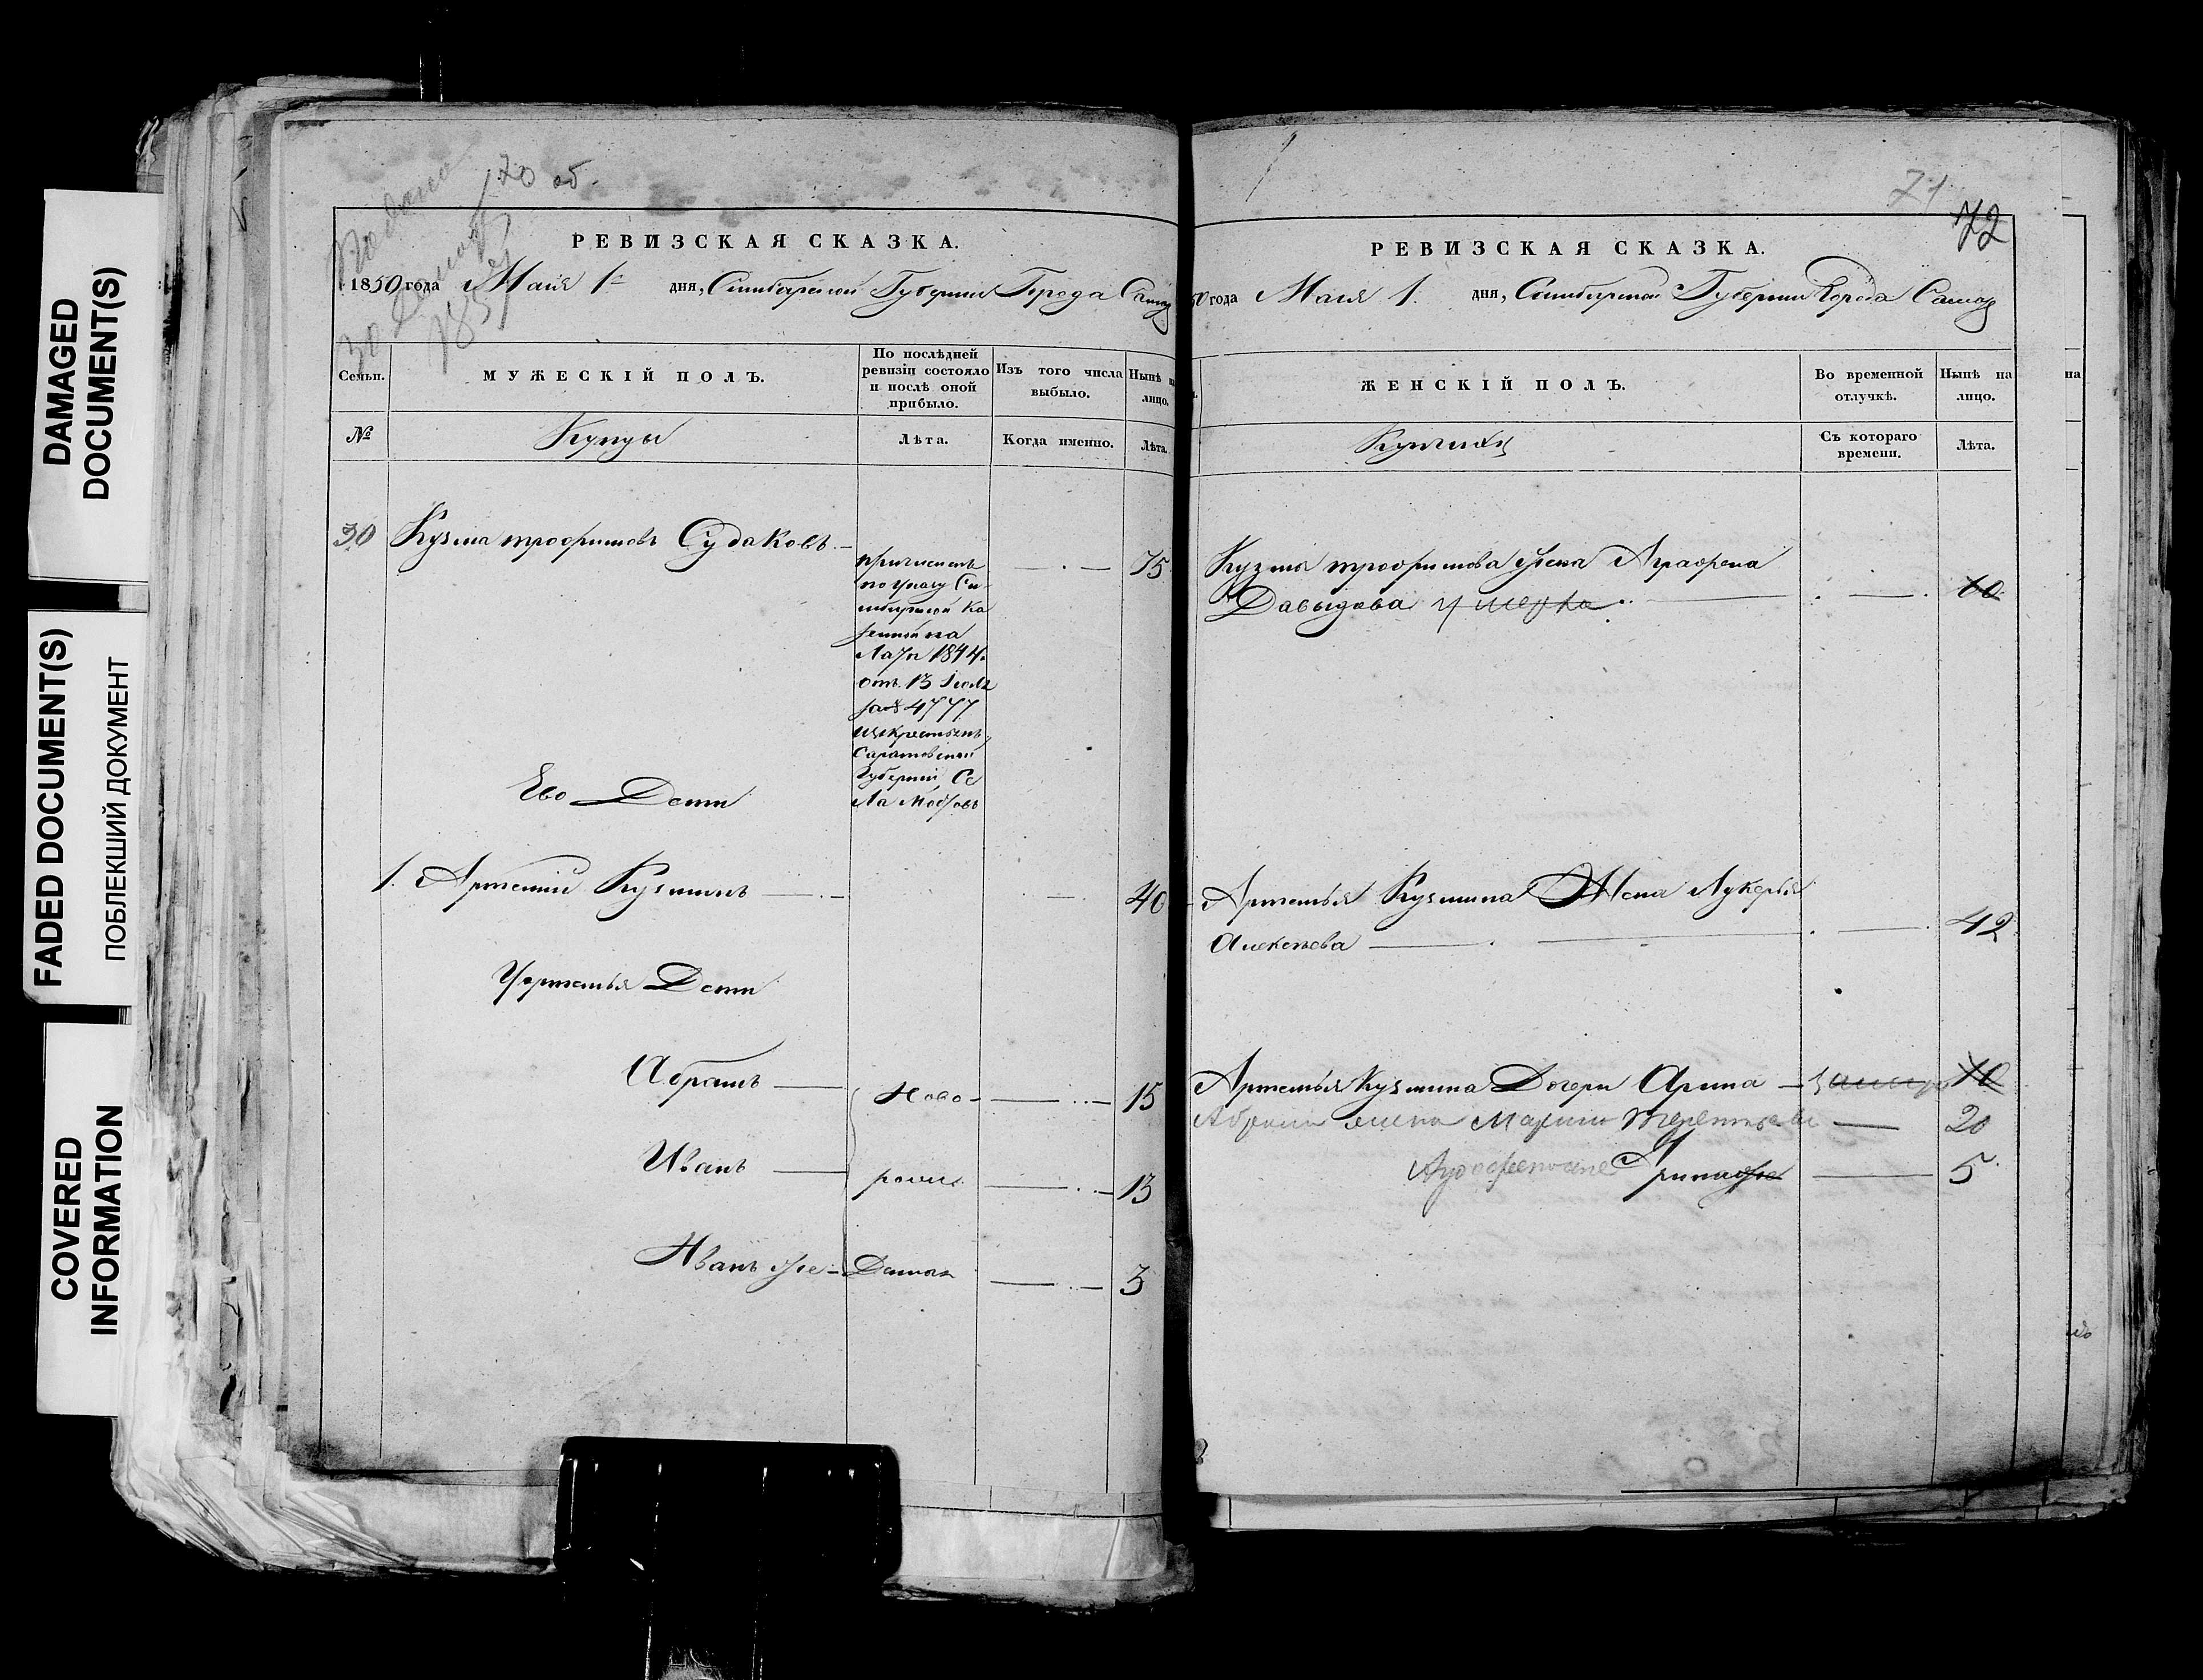 DAMAGED
DOCUMENT(S)
FADED DOCUMENT(S)
ПОБЛЕКШИЙ ДОКУМЕНТ
COVERED
INFORMATION
70 об.
РЕВИЗСКАЯ СКАЗКА.
1850 года Маия 1 дня, Симбирской Губернии Города
Семьи.
МУЖЕСКІЙ ПОЛЪ.
По послѣдней
ревизіи состояло
и послѣ оной
прибыло.
Изъ того числа
выбыло.
Нынѣ на
лицо.
№
Купцы
Лѣта.
Когда именно.
Лѣта.
30 Кузма трофимовъ Судаковъ 75
причисленъ
по указу Си
мбирской Ка
зенной па
латы 1844.
отъ 13 Іюля
за № 4777
изкрестьянъ
Саратовской
Губерніи Се
ла
Ево Дети
1. Артемий Кузминъ 40
Уартемья Дети
Абрамъ 15
Ново
Иванъ 13
Иванъ же 3
71
72
РЕВИЗСКАЯ СКАЗКА.
50 года Маия 1. дня, Симбирской Губернии Города
ЖЕНСКІЙ ПОЛЪ.
Во временной
отлучкѣ.
Нынѣ на
лицо.
на
Съ котораго
времени.
Лѣта.
Кузмы трофимова жена Аграфена
Давыдова умерла
Артемья Кузмина Жена Лукерья
Алексеева 42
Артемья Кузмина Дочери Арина 10
Абрама жена Терентьева 20
5